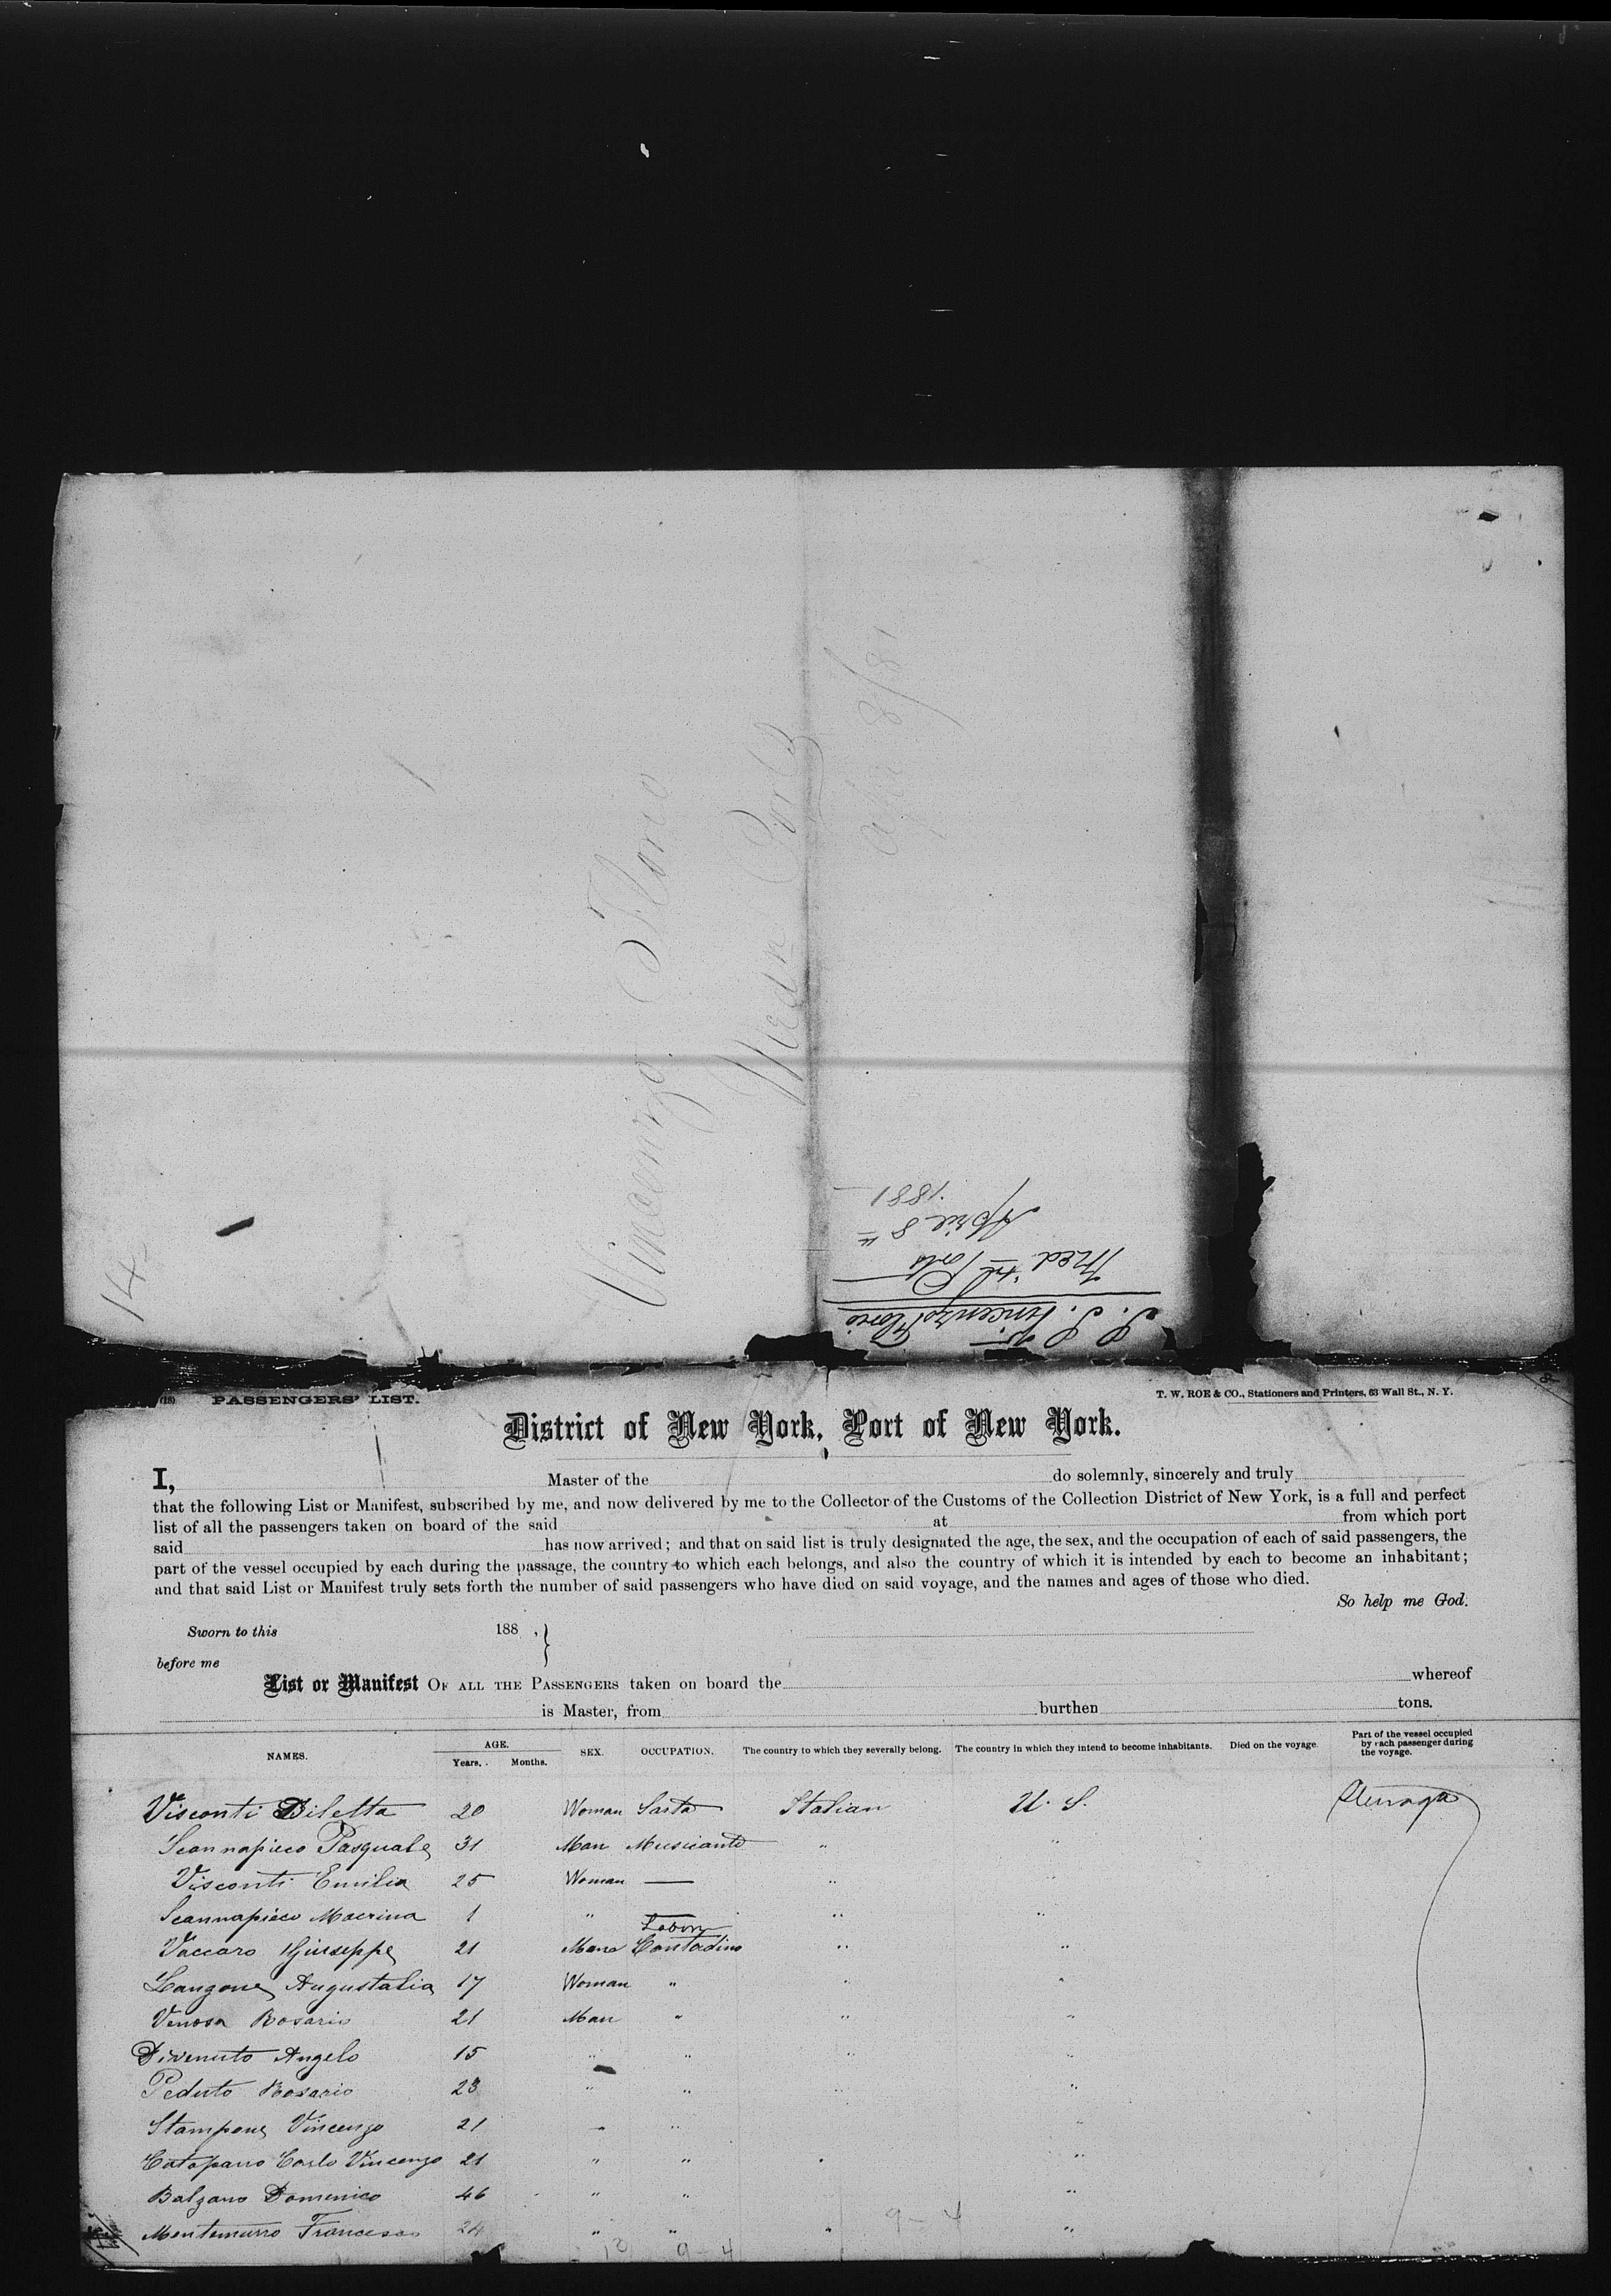 Vincenzo Florio
Medn Ports
Apr 8/81
S. S. Vincenzo Florio
Med 'n Ports
April 8th
1881
14
(18) PASSENGERS' LIST.
T. W. ROE & CO., Stationers and Printers, 63 Wall St., N. Y.
District of New York, Port of New York.
I, Master of the do solemnly, sincerely and truly
that the following List or Manifest, subscribed by me, and now delivered by me to the Collector of the Customs of the Collection District of New York, is a full and perfect
list of all the passengers taken on board of the said at from which port
said has now arrived; and that on said list is truly designated the age, the sex, and the occupation of each of said passengers, the
part of the vessel occupied by each during the passage, the country to which each belongs, and also the country of which it is intended by each to become an inhabitant;
and that said List or Manifest truly sets forth the number of said passengers who have died on said voyage, and the names and ages of those who died.
So help me God.
Sworn to this 188 ,
before me
List or Manifest OF ALL THE PASSENGERS taken on board the whereof
is Master, from burthen tons.
NAMES. AGE. Years. Months. SEX. OCCUPATION. The country to which they severally belong. The country in which they intend to become inhabitants. Died on the voyage. Part of the vessel occupied by each passenger during the voyage.
Visconti Diletta 20 Woman Sarta Italian U. S.
Scannapieco Pasquale 31 Man Musicante " "
Visconti Emilia 25 Woman — " "
Scannapieco Macrina 1 " — " "
Labor
Vaccaro Giuseppe 21 Mane Contadino " "
Langone Augustalia 17 Woman " " "
Venosa Rosario 21 Man " " "
Divenuto Angelo 15 " " " "
Peduto Rosario 23 " " " "
Stampone Vincenzo 21 " " "
Catapano Carlo Vincenzo 21 " " " "
Balzano Domenico 46 " " "
Montemurro Francesco 24 " " " "
9-4
12 9-4